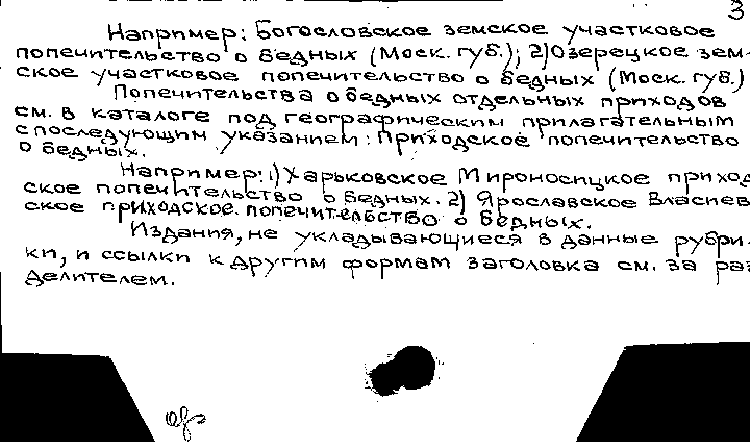 3
Например: Богословское земское участковое
попечительство о бедных (Моск. губ.); 2) Озерецкое зем-
ское участковое попечительство о бедных (Моск. губ.)
Попечительства о бедных отдельных приходов
см. в каталоге под географическим прилагательным
с последующим указанием: Приходское попечительство
о бедных.
Например: 1) Харьковское Мироносицкое приход
ское попечительство о бедных. 2) Ярославское Власиев
ское приходское попечительство о бедных.
Издания, не укладывающиеся в данные рубри-
ки, и ссылки к другим формам заголовка см. за раз
делителем.